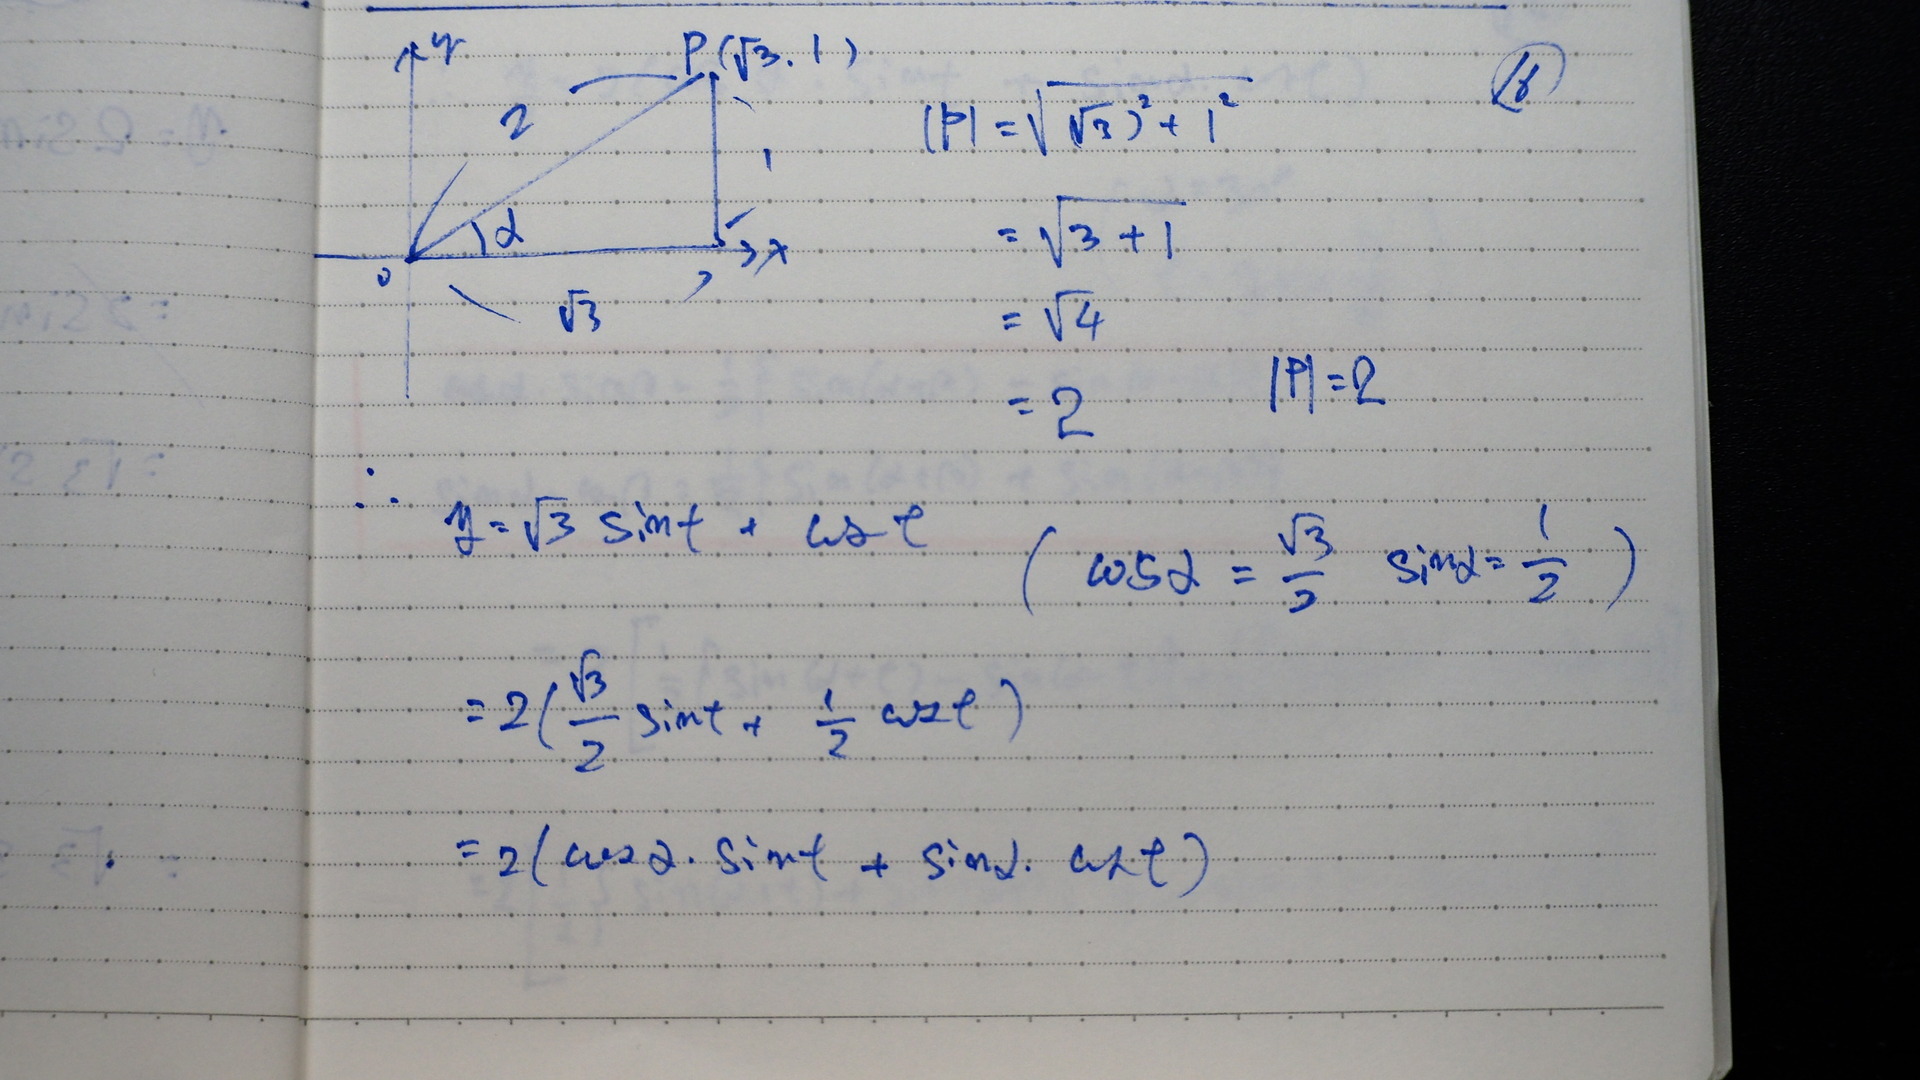 y
P(√3. 1)
2
1
α
0
x
√3
|P| = √(√3)² + 1²
= √3 + 1
= √4
= 2
|P| = 2
∴ y = √3 sin t + cos t
( cos α = √3/2 sin α = 1/2 )
= 2( √3/2 sin t + 1/2 cos t )
= 2( cos α · sin t + sin α · cos t )